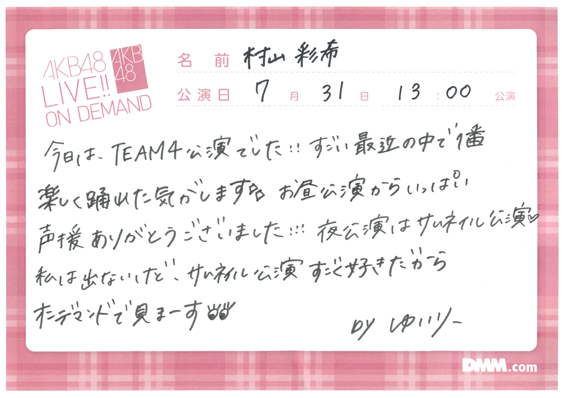 AKB48
LIVE!!
ON DEMAND
AKB
48
名前 村山 彩希
公演日 7月 31日 13:00 公演
今日は、TEAM4公演でした!!すごい最近の中で1番
楽しく踊れた気がします お昼公演からいっぱい
声援ありがとうございました!!! 夜公演はサムネイル公演♡
私は出ないけど、サムネイル公演すごく好きだから
オンデマンドで見まーす
by ゆいりー
DMM.com